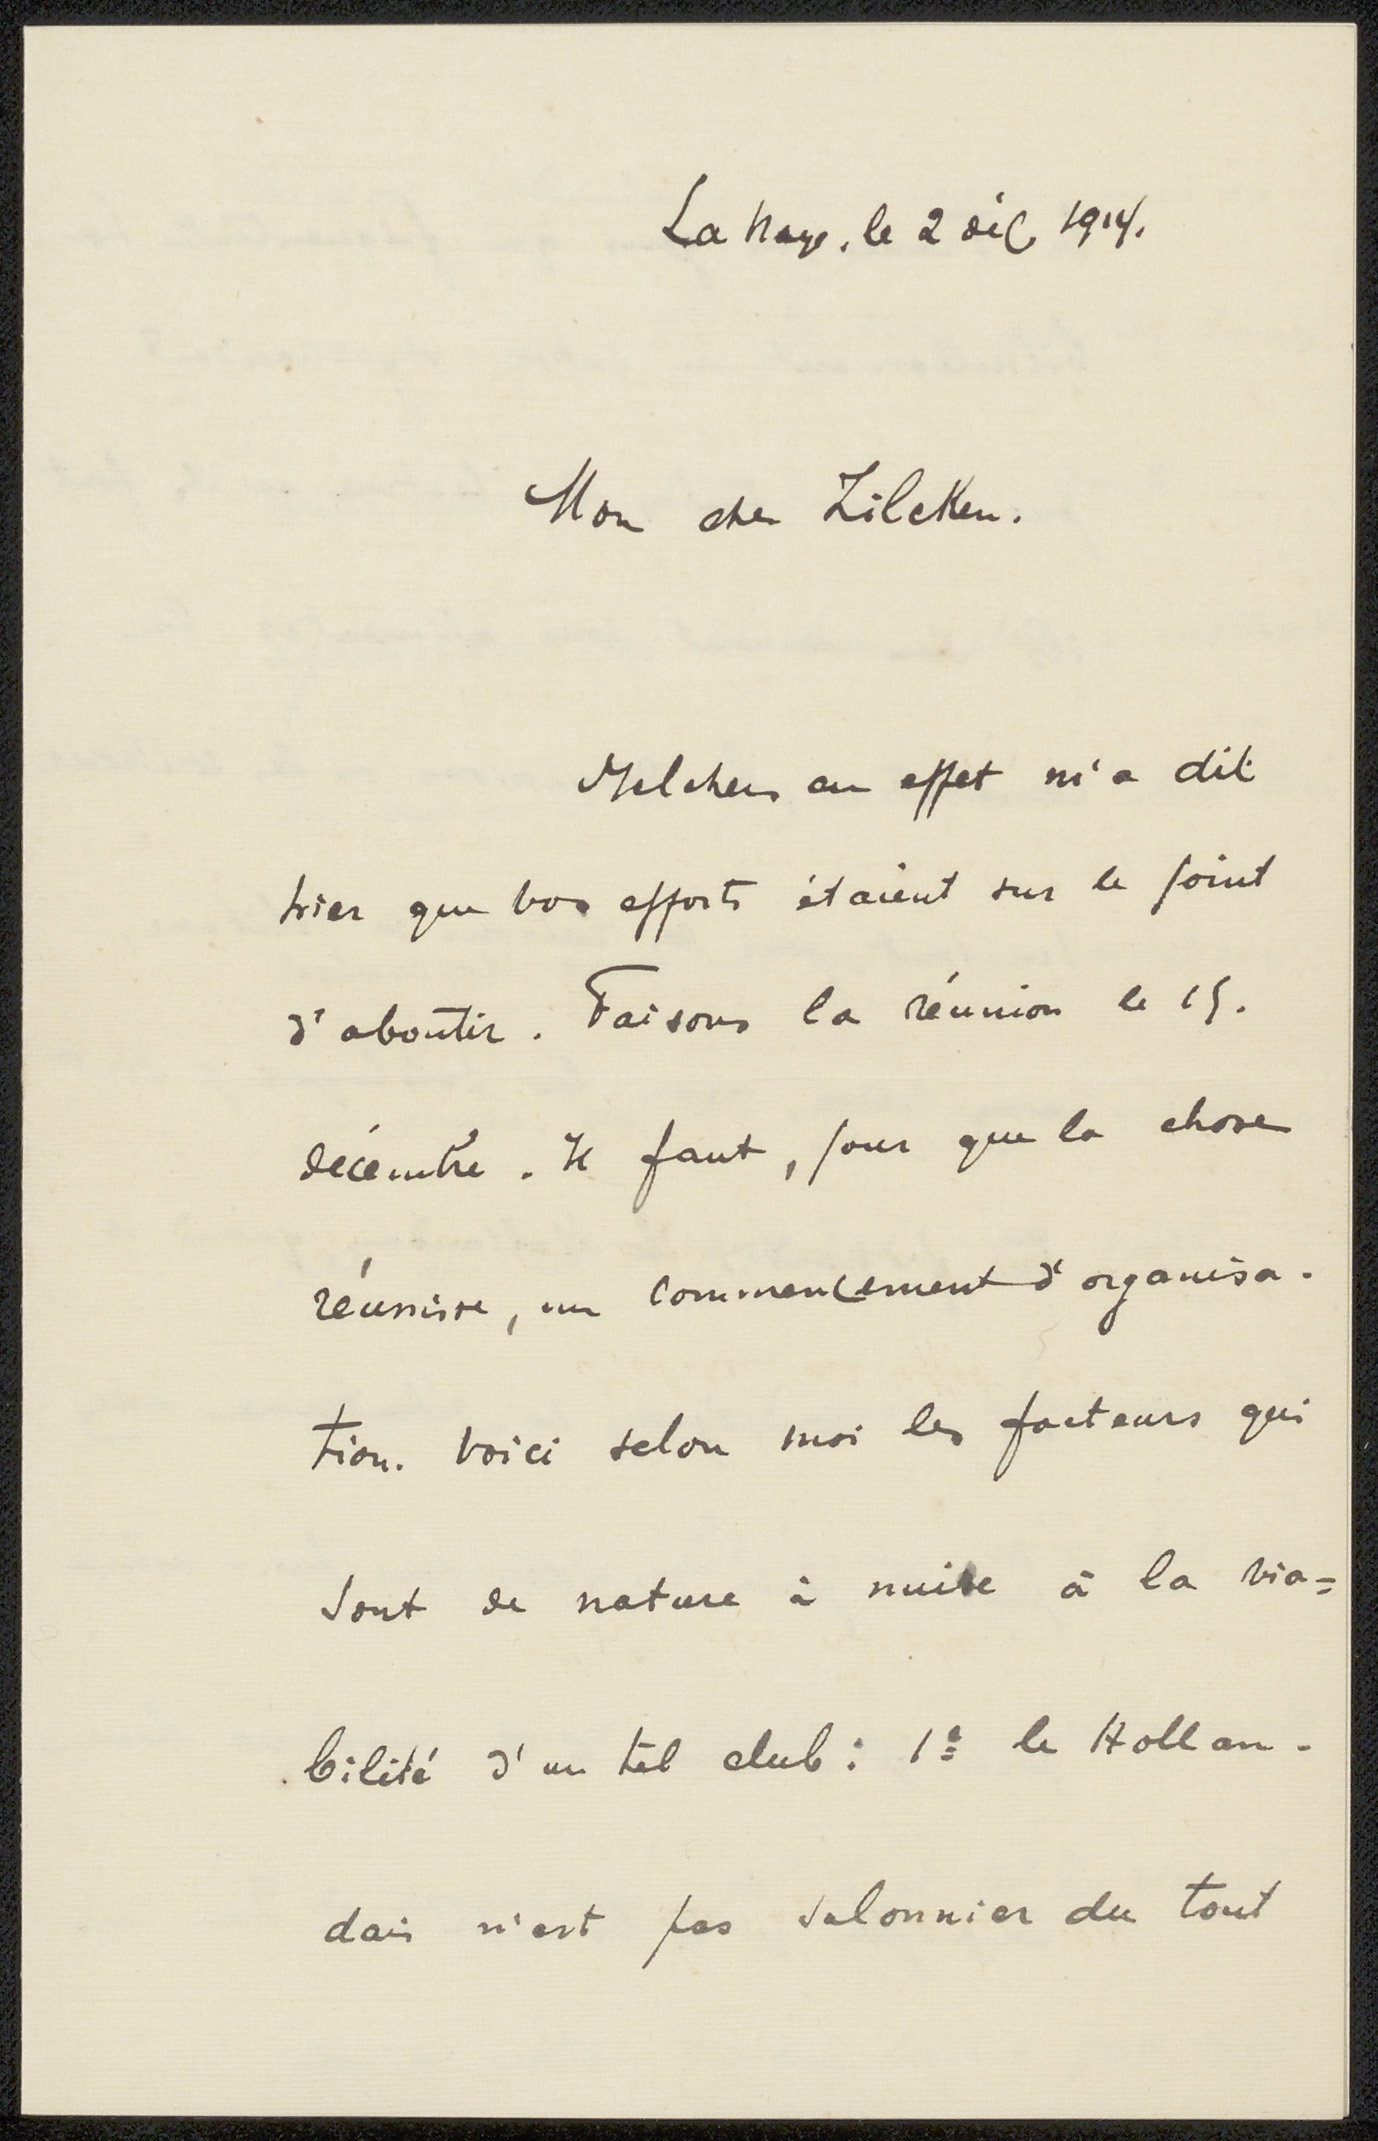 La Haye, le 2 déc 1914.
Mon cher Zilcken.
Melchers en effet m'a dit
hier que vos efforts étaient sur le point
d'aboutir. Faisons la réunion le 15.
décembre. Il faut, pour que la chose
réussisse, un commencement d'organisa-
tion. Voici selon moi les facteurs qui
sont de nature à nuire à la via=
bilité d'un tel club: 1º le Hollan-
dais n'est pas salonnier du tout